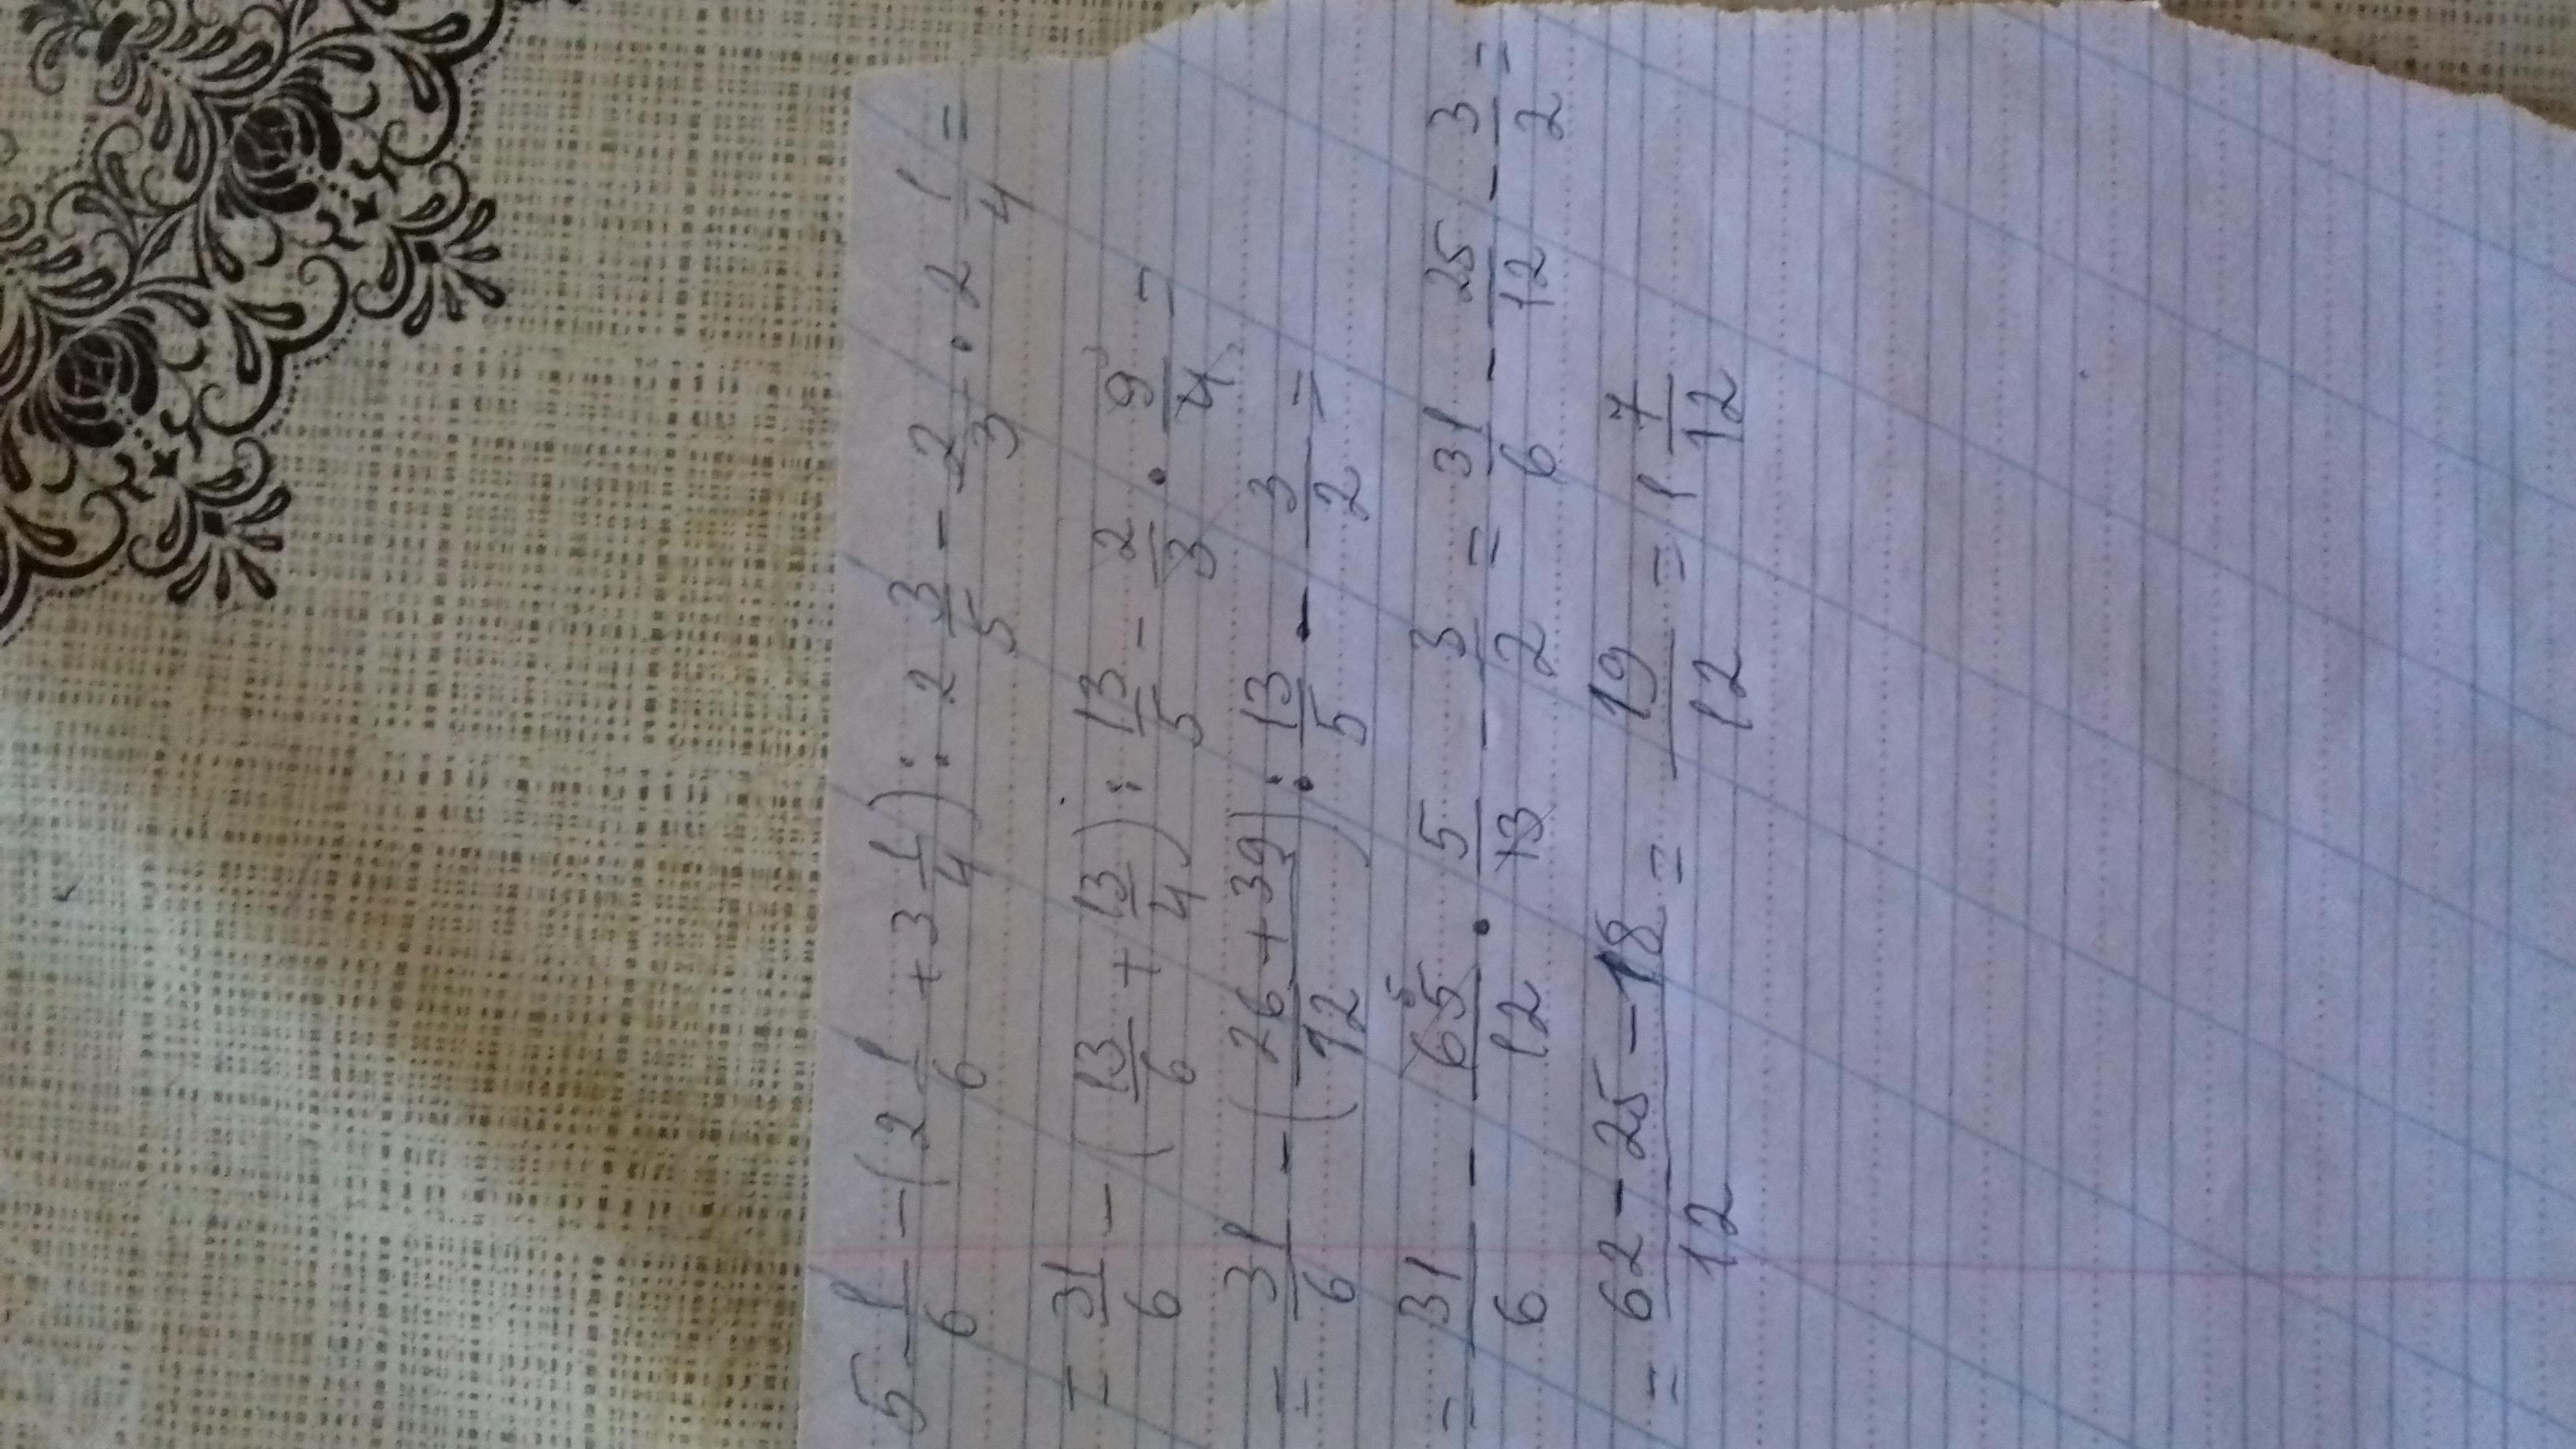 5 1/6 - (2 1/6 + 3 1/4) : 2 3/5 - 2/3 · 2 1/4 =
= 31/6 - (13/6 + 13/4) : 13/5 - 2/3 · 9/4 =
= 31/6 - (26+39/12) : 13/5 - 3/2 =
= 31/6 - 65/12 · 5/13 - 3/2 = 31/6 - 25/12 - 3/2 =
= 62-25-18/12 = 19/12 = 1 7/12